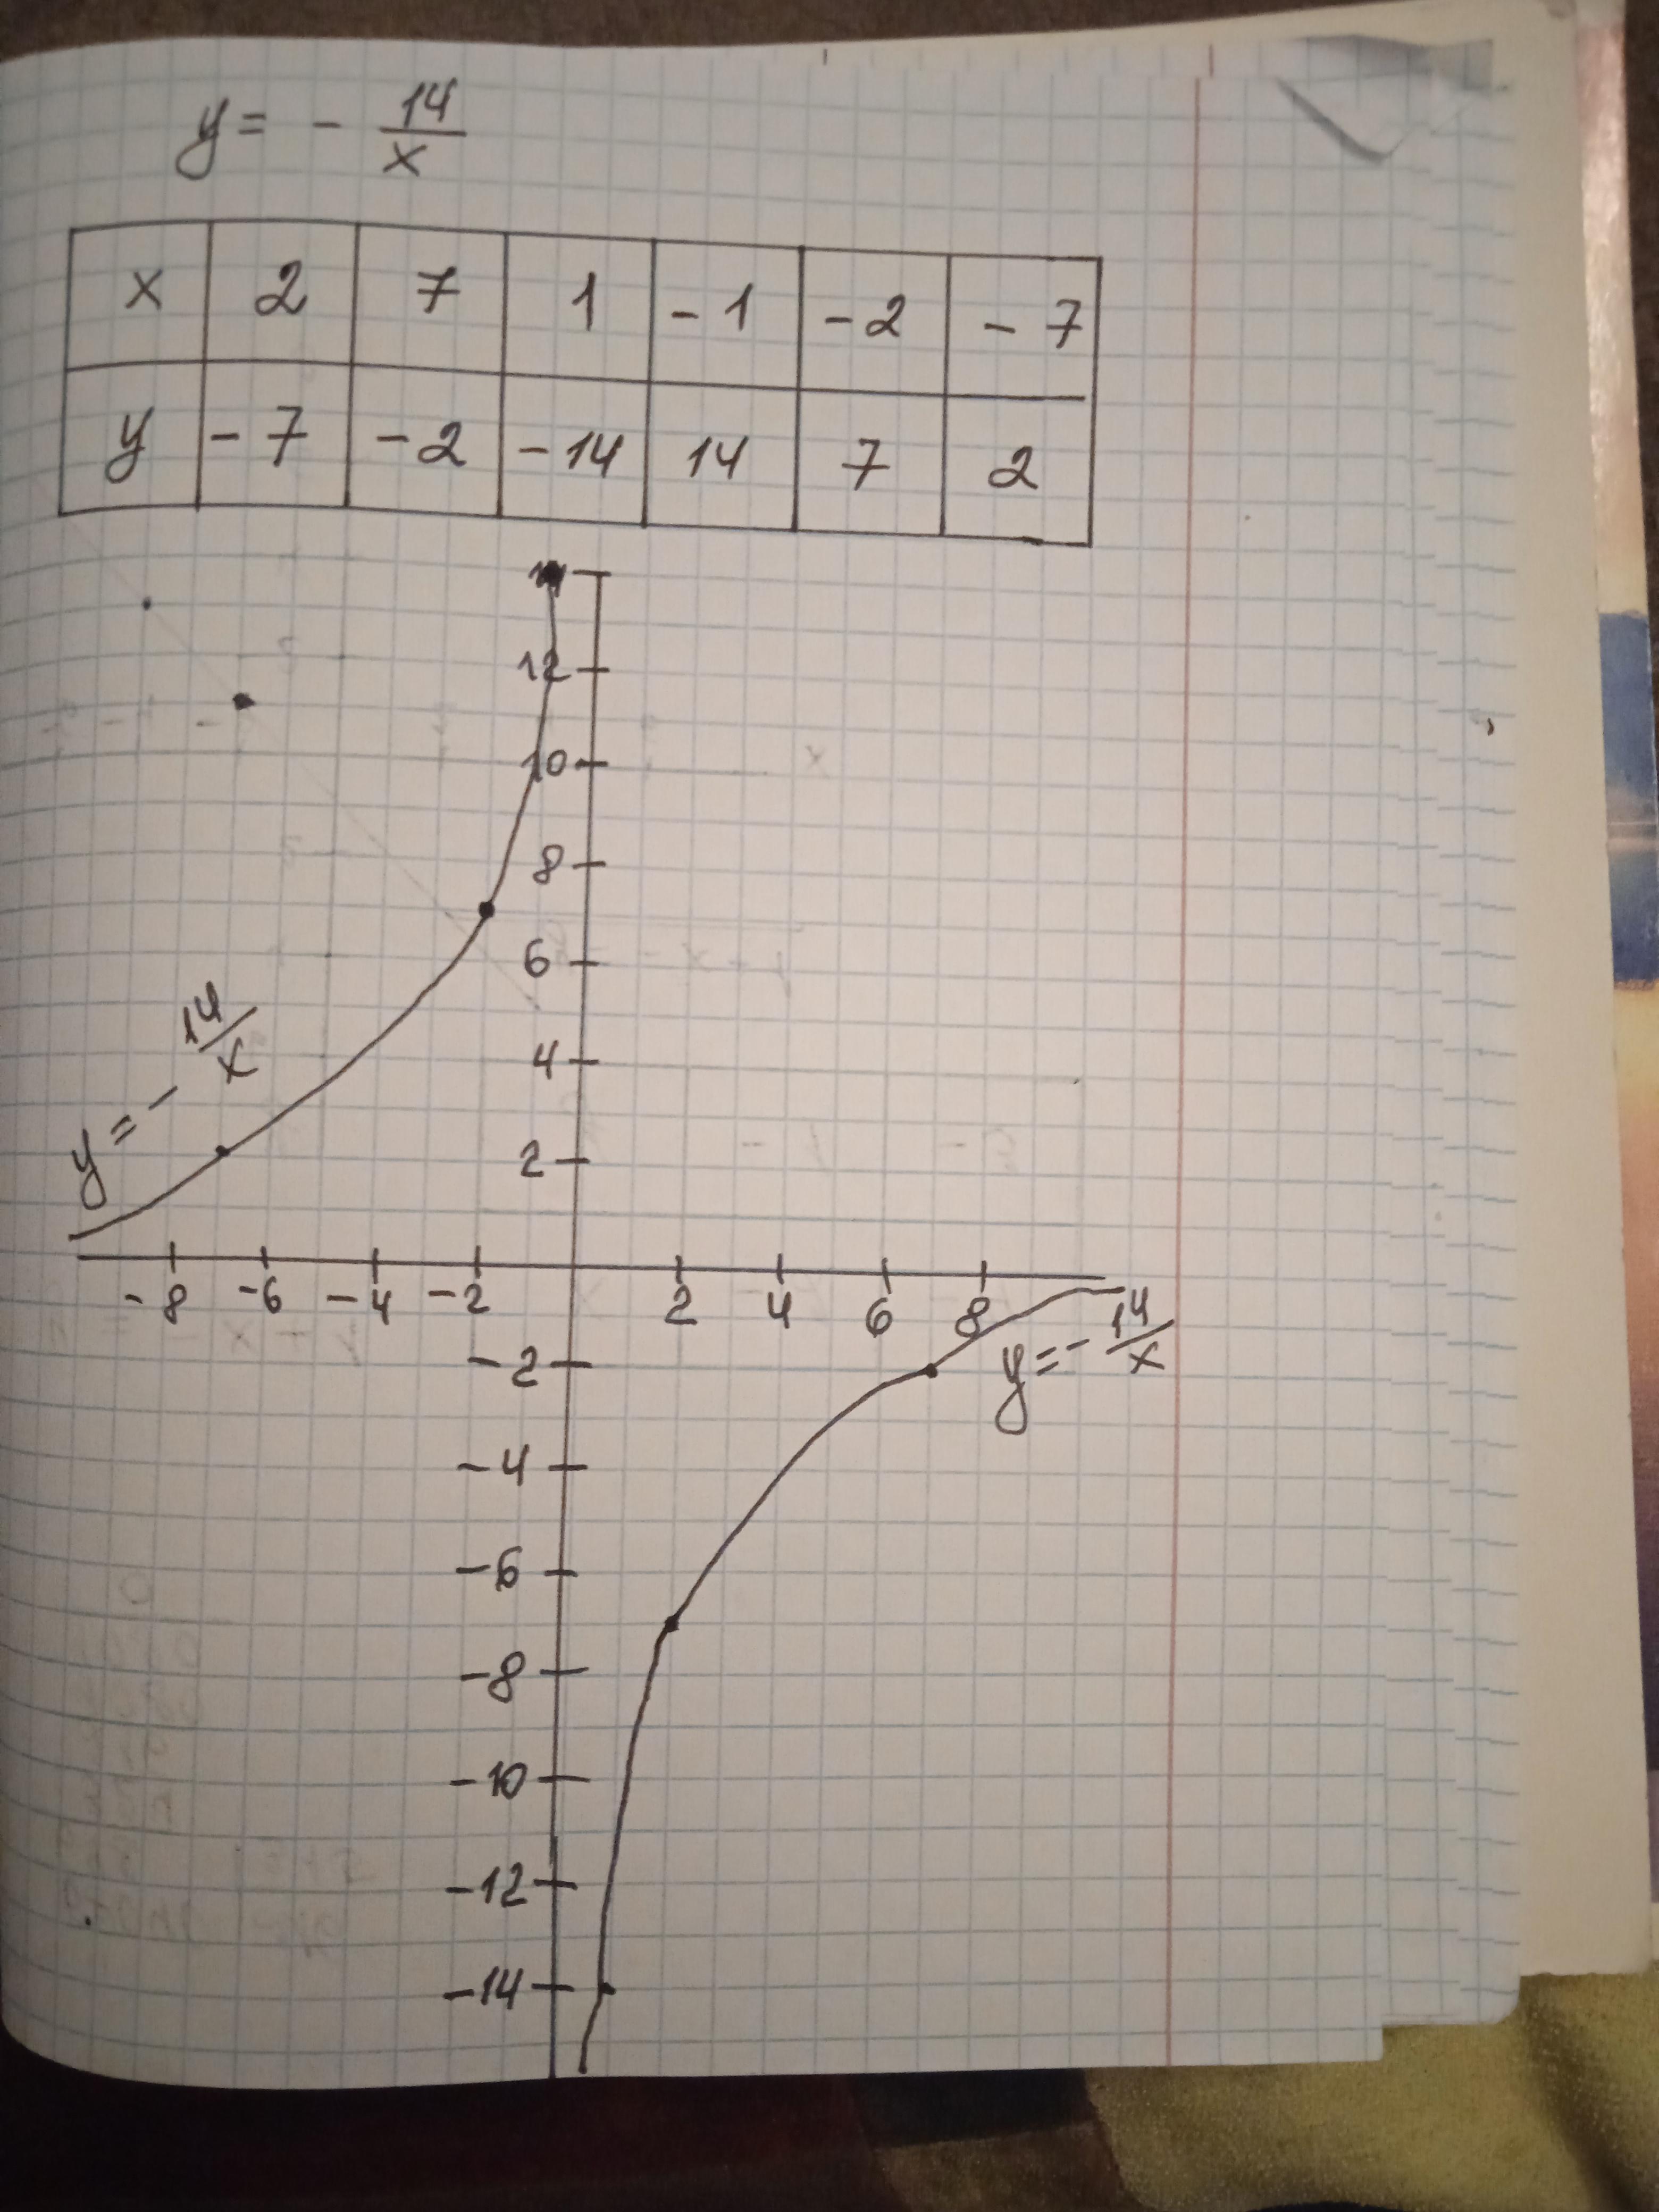 y = - 14/x
x 2 7 1 -1 -2 -7
y -7 -2 -14 14 7 2
14
12
10
8
6
y = - 14/x
4
2
-8 -6 -4 -2 2 4 6 8
-2
y = - 14/x
-4
-6
-8
-10
-12
-14